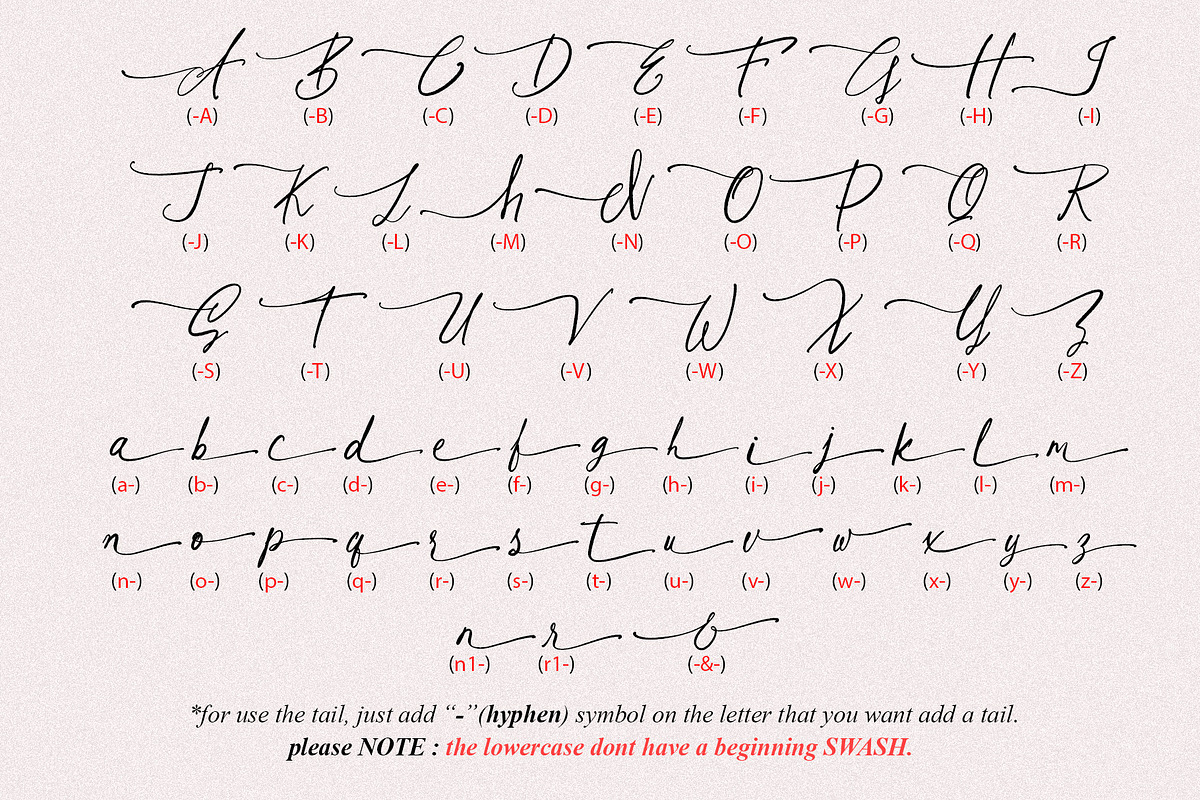 A B C D E F G H I
(-A) (-B) (-C) (-D) (-E) (-F) (-G) (-H) (-I)
J K L M N O P Q R
(-J) (-K) (-L) (-M) (-N) (-O) (-P) (-Q) (-R)
S T U V W X Y Z
(-S) (-T) (-U) (-V) (-W) (-X) (-Y) (-Z)
a b c d e f g h i j k l m
(a-) (b-) (c-) (d-) (e-) (f-) (g-) (h-) (i-) (j-) (k-) (l-) (m-)
n o p q r s t u v w x y z
(n-) (o-) (p-) (q-) (r-) (s-) (t-) (u-) (v-) (w-) (x-) (y-) (z-)
n r &
(n1-) (r1-) (-&-)
*for use the tail, just add “-”(hyphen) symbol on the letter that you want add a tail.
please NOTE : the lowercase dont have a beginning SWASH.